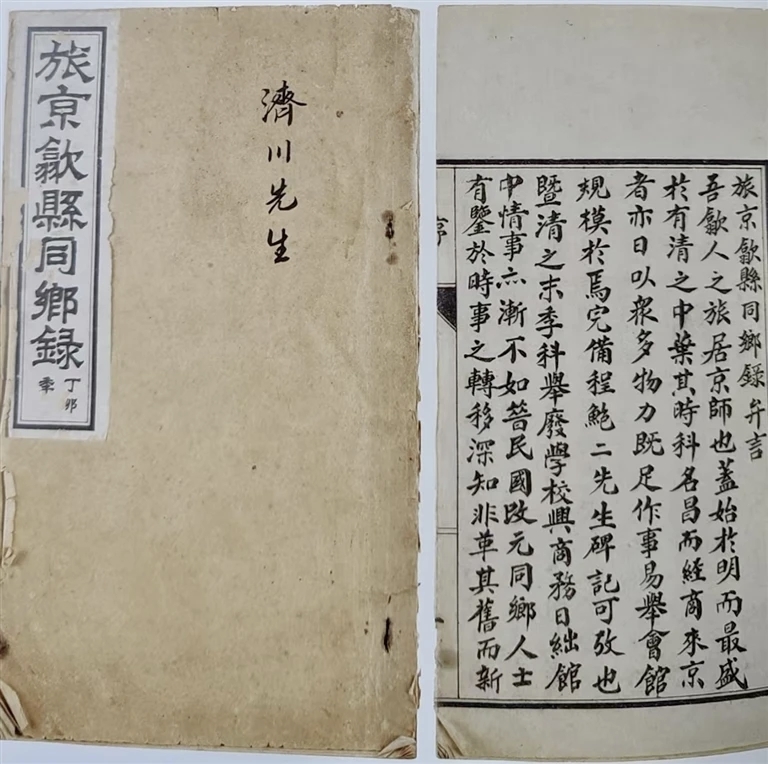 旅京歙縣同鄉錄
丁夘
秊
濟川先生
旅京歙縣同鄉錄弁言
吾歙人之旅居京師也蓋始於明而最盛
於有清之中葉其時科名昌而經商來京
者亦日以衆多物力既足作事易舉會館
規模於焉完備程鮑二先生碑記可攷也
暨清之末季科舉廢學校興商務日絀館
中情事亦漸不如昔民國改元同鄉人士
有鑒於時事之轉移深知非革其舊而新